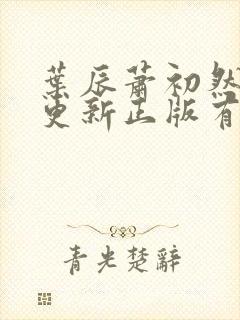 葉辰蕭初然
更新正版有
青光楚辭